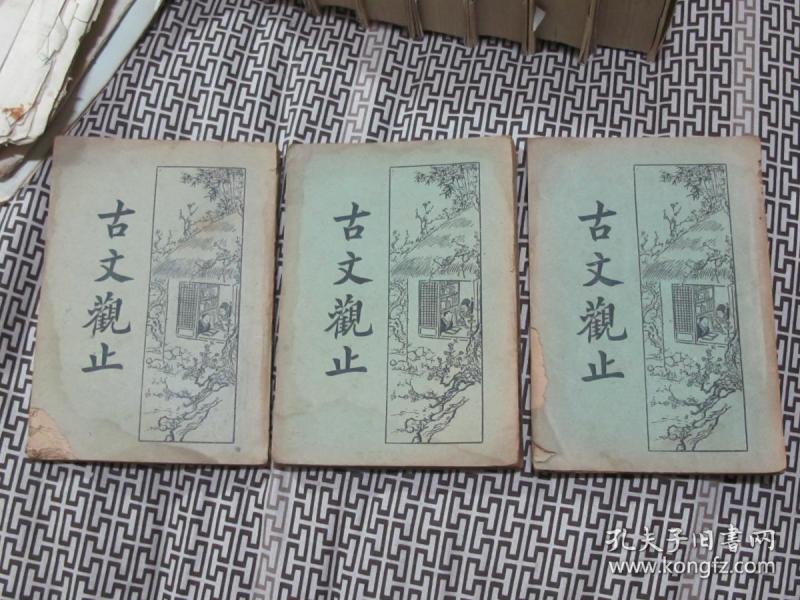 古文觀止
古文觀止
古文觀止
孔夫子旧書网
www.kongfz.com